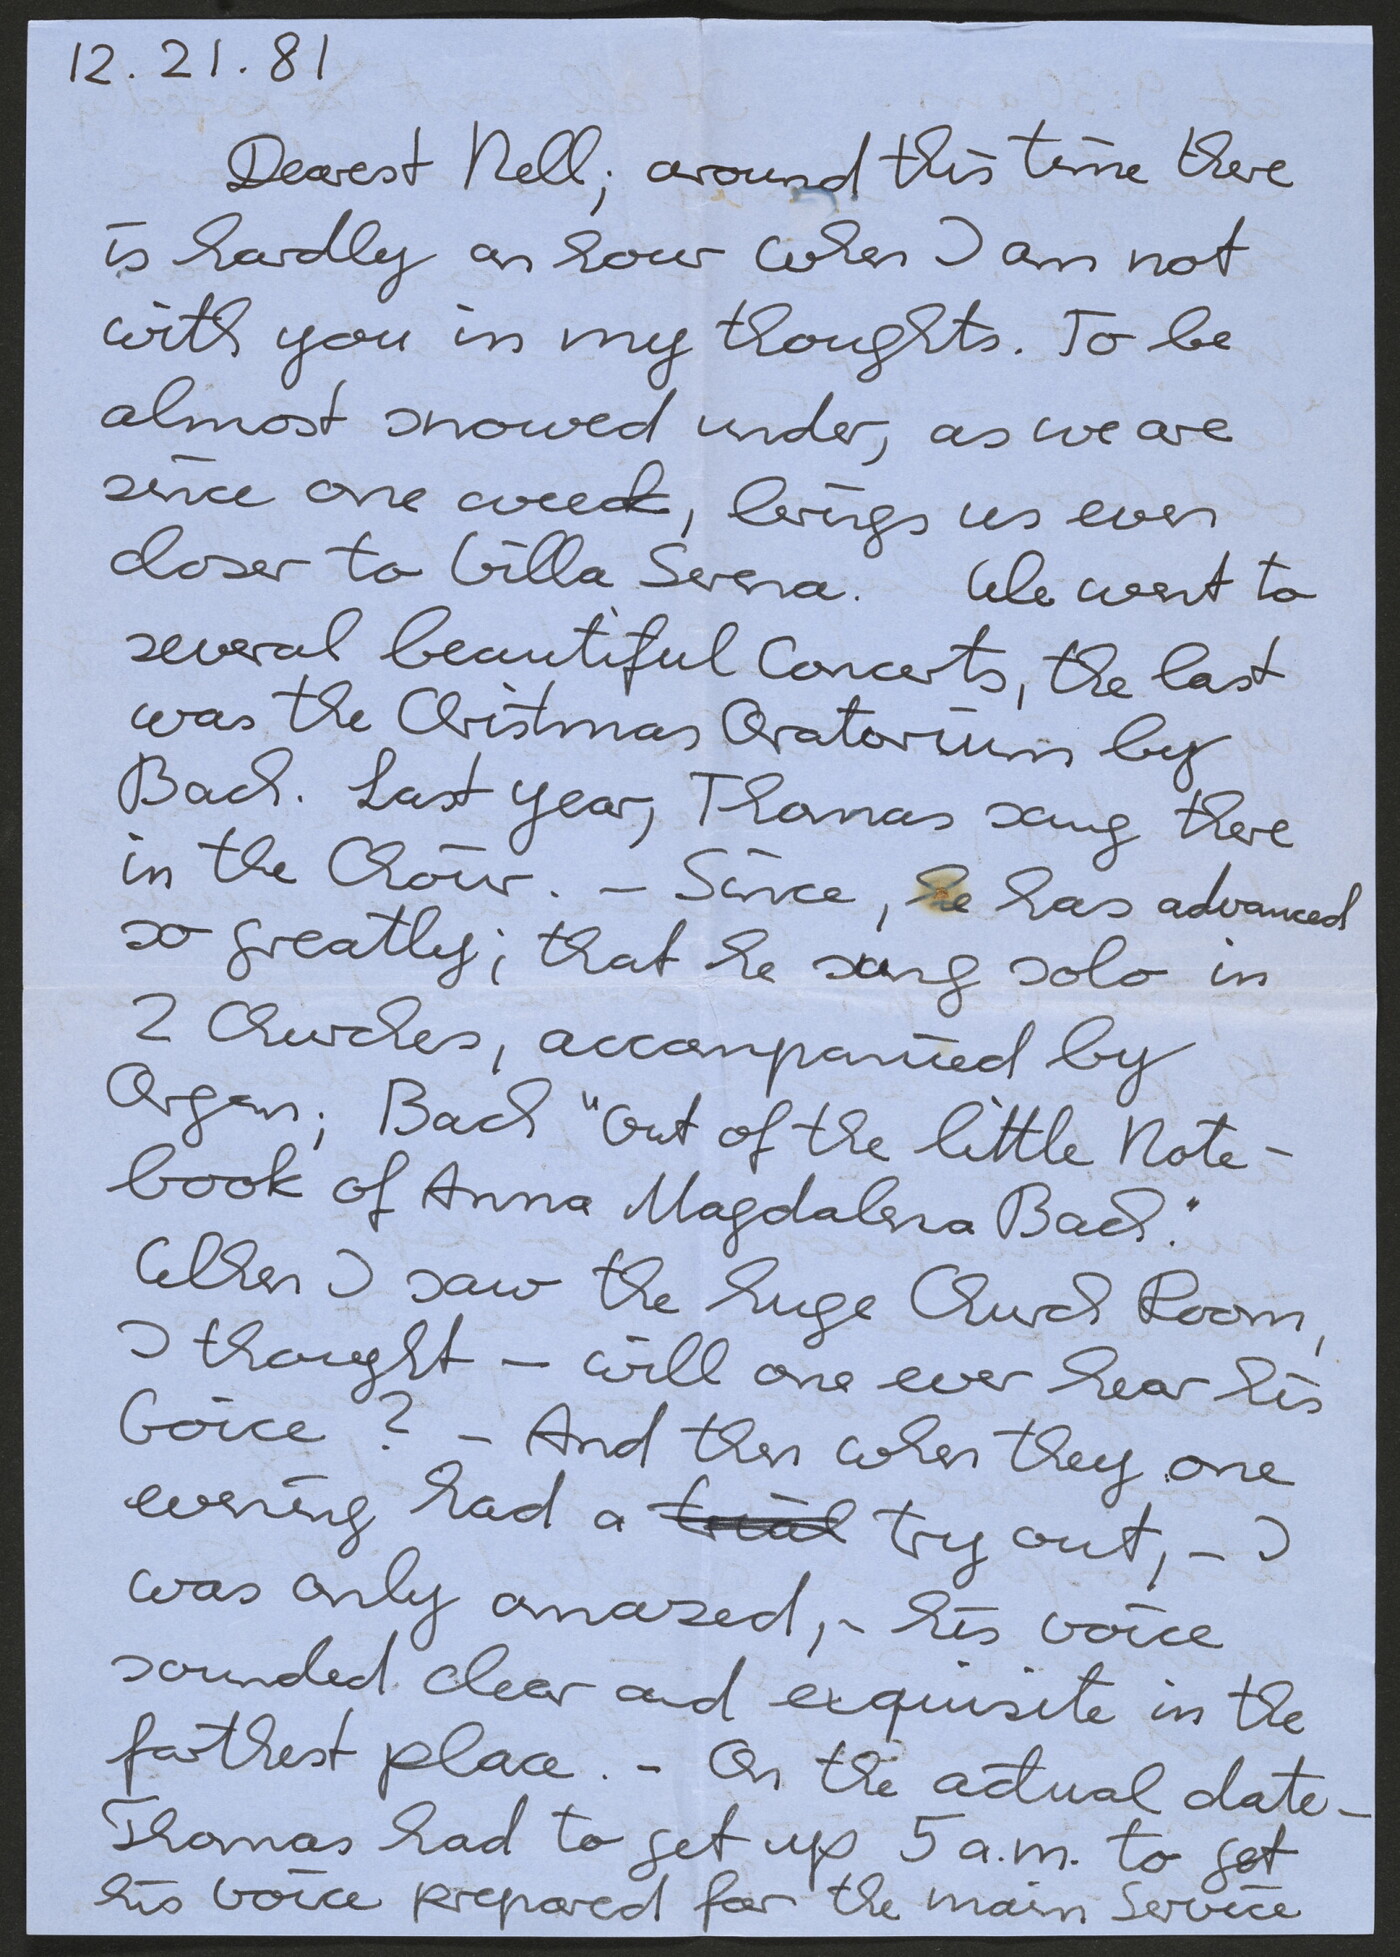 12. 21. 81
Dearest Nell; around this time there
is hardly an hour when I am not
with you in my thoughts. To be
almost snowed under, as we are
since one week, brings us even
closer to Villa Serena. We went to
several beautiful Concerts, the last
was the Christmas Oratorium by
Bach. Last year, Thomas sang there
in the Choir. – Since, he has advanced
so greatly; that he sang solo in
2 Churches, accompanied by
Organ; Bach "Out of the little Note-
book of Anna Magdalena Bach."
When I saw the huge Church Room,
I thought – will one ever hear his
Voice? – And then when they one
evening had a trial try out, – I
was only amazed, – his voice
sounded clear and exquisite in the
farthest place. – On the actual date –
Thomas had to get up 5 a.m. to get
his voice prepared for the main Service